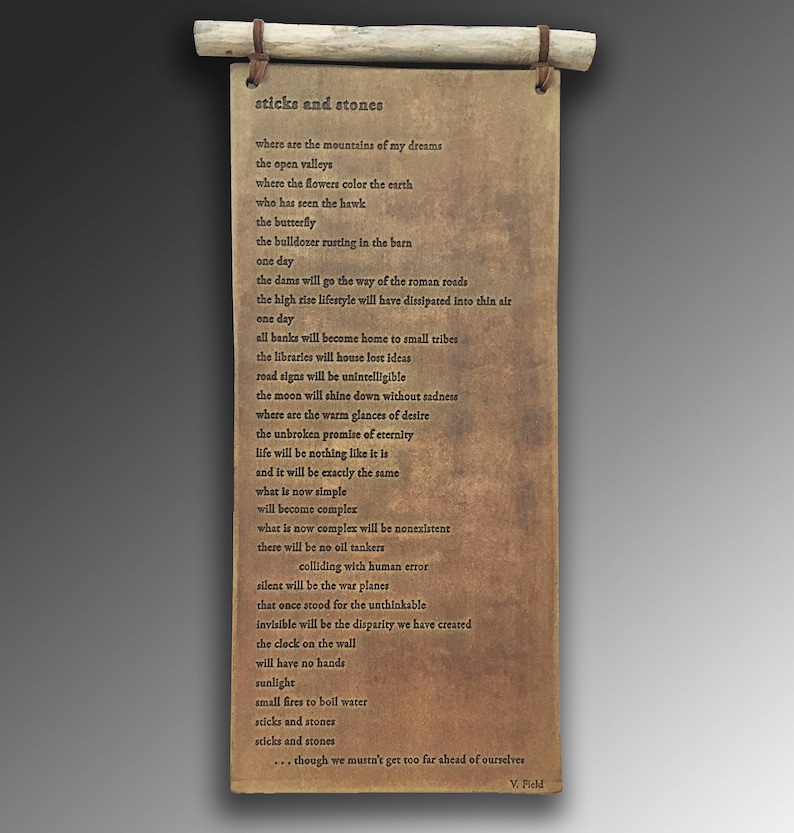 sticks and stones
where are the mountains of my dreams
the open valleys
where the flowers color the earth
who has seen the hawk
the butterfly
the bulldozer rusting in the barn
one day
the dams will go the way of the roman roads
the high rise lifestyle will have dissipated into thin air
one day
all banks will become home to small tribes
the libraries will house lost ideas
road signs will be unintelligible
the moon will shine down without sadness
where are the warm glances of desire
the unbroken promise of eternity
life will be nothing like it is
and it will be exactly the same
what is now simple
will become complex
what is now complex will be nonexistent
there will be no oil tankers
colliding with human error
silent will be the war planes
that once stood for the unthinkable
invisible will be the disparity we have created
the clock on the wall
will have no hands
sunlight
small fires to boil water
sticks and stones
sticks and stones
. . . though we mustn't get too far ahead of ourselves
V. Field